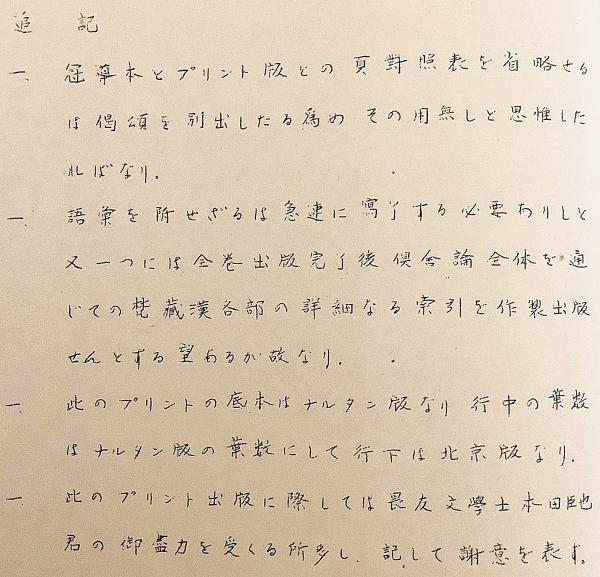 追記
一、冠導本とプリント版との頁對照表を省略せる
は偈頌を別出したる爲めその用無しと思惟した
ればなり。
一、語彙を附せざるは急速に寫了する必要ありしと
又一つには全巻出版完了後倶舎論全体を通
じての梵藏漢各部の詳細なる索引を作製出版
せんとする望あるが故なり。
一、此のプリントの底本はナルタン版なり行中の葉数
はナルタン版の葉数にして行下は北京版なり、
一、此のプリント出版に際しては畏友文學士本田
君の御盡力を受くる所多し、記して謝意を表す。